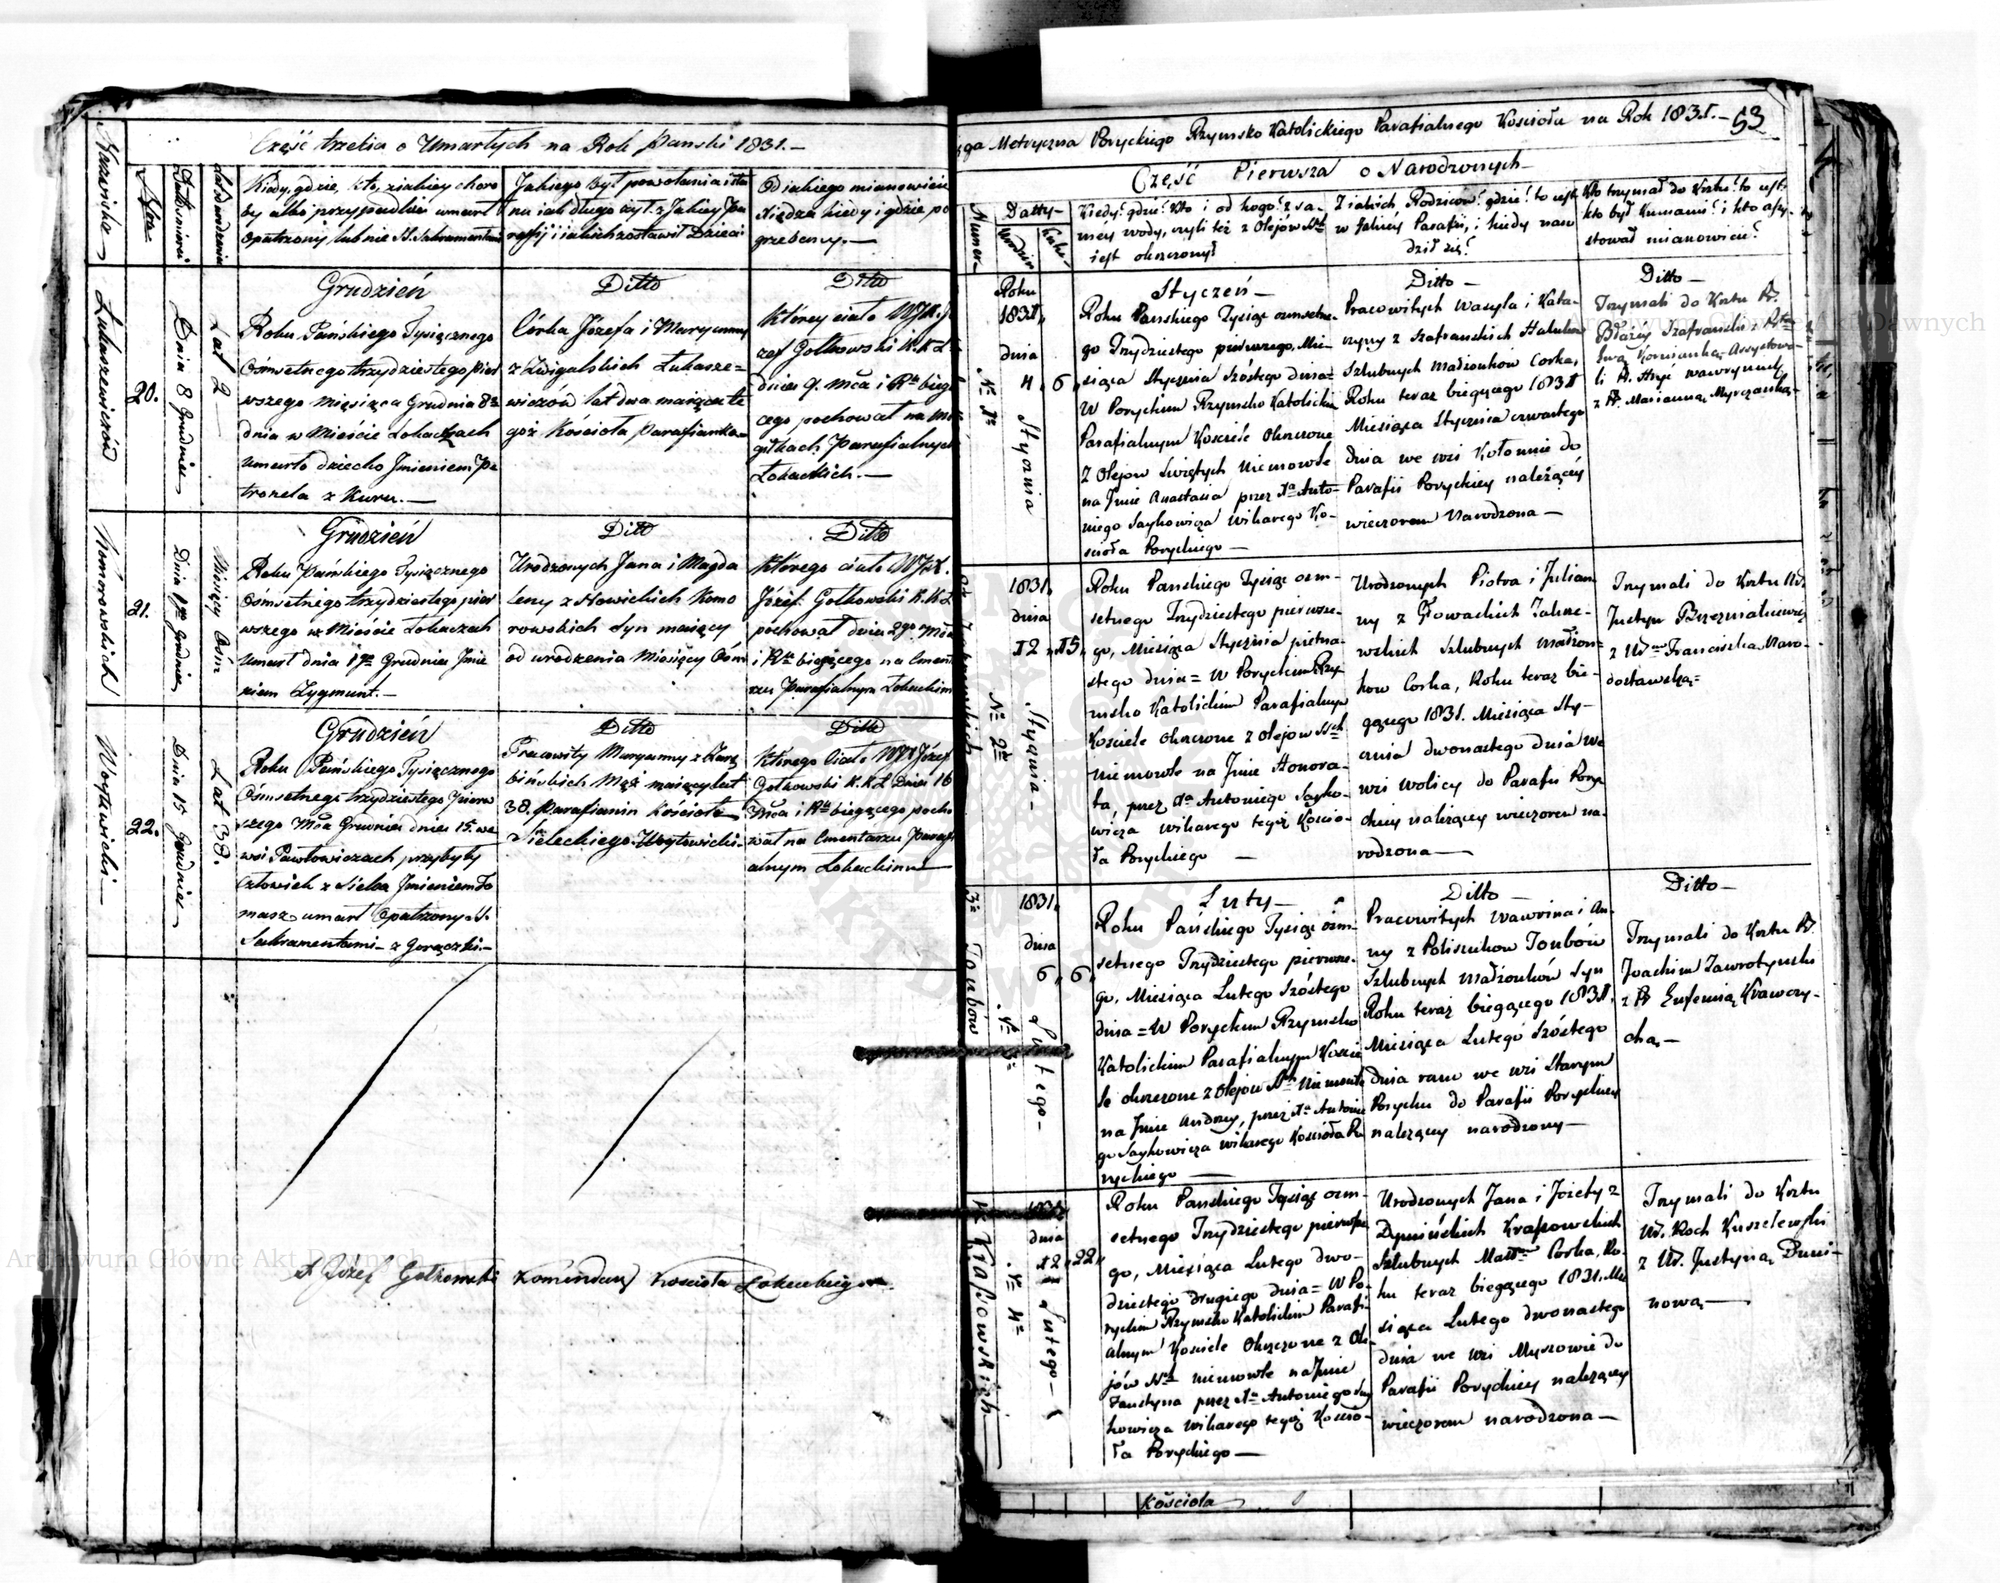 Część trzecia o Umarłych na Rok Panski 1831.—
Nazwiska
Nro
Dnia 8 Grudnia
Lat 2
Kiedy, gdzie, kto, z iakiey choro
by albo przypadku umarł
Opatrzony lub nie SS. Sakramentami
Jakiego był powołania i sta
nu iak długo żył. z Jakiey Pa
rafij i iakich zostawił Dzieci
Od iakiego mianowicie
Xiędza kiedy i gdzie po
grzebany.—
Łukaszewiczów
20.
Grudzień
Roku Pańskiego Tysięcznego
Ośmsetnego trzydziestego pier
wszego Miesiąca Grudnia 8go
dnia w Mieście Łokaczach
umarło dziecko Jmieniem Pe
tronela z Kuru.—
Ditto
Córka Józefa i Maryanny
z Zwigalskich Łukasze=
wiczów lat dwa maiąca te
goż Kościoła Parafianka
Ditto
Którey ciało WJX. Jó
zef Gołkowski K.K.Ł.
dnia 9. Mca i Rku bieg
cego pochował na mo
giłkach Parafialnych
Łokackich.—
Komorowskich
21.
Dnia 1go Grudnia
Miesięcy Ośm
Grudzień
Roku Pańskiego Tysięcznego
Ośmsetnego trzydziestego pier
wszego w Mieście Łokaczach
umarł dnia 1go Grudnia Jmie
niem Zygmunt.—
Ditto
Urodzonych Jana i Magda
leny z Nowickich Komo
rowskich Syn maiący
od urodzenia Miesięcy Ośm
Ditto
Którego ciało WJX.
Józef Gołkowski K.K.Ł
pochował dnia 2go Mca
i Rku bieżącego na Cment
rzu Parafialnym Łokackim
Woytowicki—
22.
Dnia 15 Grudnia
Lat 38.
Grudzień
Roku Pańskiego Tysięcznego
Ośmsetnego trzydziestego Pierw
szego Mca Grudnia dnia 15. we
wsi Pawłowiczach przybyły
Człowiek z Sielca Jmieniem To
masz umarł Opatrzony SS.
Sakramentami— z Gorączki.—
Ditto
Pracowity Maryanny z
bińskich Mąż maiący lat
38. Parafianin Kościoła
Sieleckiego Woytowicki.
Ditto
Którego Ciało WJX Józef
Gołkowski K.K.Ł Dnia 16
Mca i Rku bieżącego pocho
wał na Cmentarzu Parafi
alnym Łokackim
X Józef Gołkowski Komendarz Kościoła Łokackiego
ęga Metryczna Poryckiego Rzymsko Katolickiego Parafialnego Kościoła na Rok 1831.—
53
Część Pierwsza o Narodzonych—
Numer
Datty—
Urodzin
Kiedy? gdzie? Kto i od kogo? z sa-
mey wody, czyli też z Olejów Stch
iest okrzczony?
Z iakich Rodziców? gdzie? to iest
w Jakiey Parafii, i kiedy naro
dził się?
Kto trzymał do Krztu? to iest
kto był Kumami? i kto assy-
stował mianowicie?
Roku
1831.
dnia
4, 6,
Stycznia
No 1o
Styczeń—
Roku Panskiego Tysiąc osmsetne-
go Trzydziestego pierwszego, Mie-
siąca Stycznia Szóstego dnia=
W Poryckim Rzymsko Katolickim
Parafialnym Kosciele Okrzczone
Z Olejow Swiętych Niemowle
na Jmie Anastasia przez Xa Anto-
niego Saykowicza Wikarego Ko-
scioła Poryckiego—
Ditto—
Pracowitych Wasyla i Kata-
rzyny z Szafranskich
Szlubnych Małżonkow Corka,
Roku teraz bieżącego 1831
Miesiąca Stycznia czwartego
Dnia we wsi Kołomie do
Parafii Poryckiey należącey
wieczorem Narodzona—
Ditto—
Trzymali do Krztu P.
Błażey Szafranski z
Assystowa-
li P.
z P. Marianną
1831.
dnia
12, 15,
Stycznia—
No 2do
Roku Panskiego Tysiąc osm-
setnego Trzydziestego pierwsze-
go, Miesiąca Stycznia pietna-
stego dnia= W Poryckim Rzy-
msko Katolickim Parafialnym
Kościele Okrzczone z Olejow Stych
Niemowle na Jmie Honora-
ta, przez Xa Antoniego Sayko-
wicza Wikarego tegoż Koscio-
ła Poryckiego —
Urodzonych Piotra i Julian
ny z Głowackich
Szlubnych Małżon-
kow Corka, Roku teraz bie-
gącego 1831. Miesiąca Sty-
cznia dwonastego dnia we
wsi Wolicy do Parafii Pory-
ckiey należącey wieczorem na-
rodzona—
Trzymali do Krztu W.
Justyn
z W. Franciszką
1831.
dnia
6, 6,
Lutego—
3o
Jożubów
Luty—
Roku Pańskiego Tysiąc osm-
setnego Trzydziestego pierwsze-
go, Miesiąca Lutego Szóstego
dnia= W Poryckim Rzymsko
Katolickim Parafialnym Koscie
le okrzczone z Olejow Stch Niemowle
na Jmie Andrzey, przez Xa Antonie
go Saykowicza Wikarego Kościoła Po
ryckiego —
Ditto—
Pracowitych Wawrina i An-
ny z Polisukow
Szlubnych Małżonków Syn
Roku teraz bieżącego 1831,
Miesiąca Lutego Szóstego
dnia rano we wsi Starym
Porycku do Parafii Poryckiey
należącey narodzony—
Ditto—
Trzymali do Krztu P.
Joachim Zawrotynski
z P. Eufemią Krawczy-
chą—
1831
dnia
12, 22,
Lutego—
No 4o
Krassowskich
Roku Panskiego Tysiąc osm-
setnego Trzydziestego pierwsze
go, Miesiąca Lutego dwo-
dziestego Drugiego dnia= W Po-
ryckim Rzymsko Katolickim Parafi-
alnym Kościele Okrzczone z Ole-
jów Stch niemowle na Jmie
Faustyna przez Xa Antoniego Say
kowicza Wikarego tegoż Koscio-
ła Poryckiego—
Urodzonych Jana i Jozefy z
Krassowskich
Szlubnych Małż Corka, Ro-
ku teraz bieżącego 1831. Mie
siąca Lutego dwonastego
dnia we wsi Myszowie do
Parafii Poryckiey należącey
wieczorem narodzona—
Trzymali do Krztu
W. Roch Kuszelewski
z W. Justyną Duni-
nową—
Kościoła
Archiwum Główne Akt Dawnych